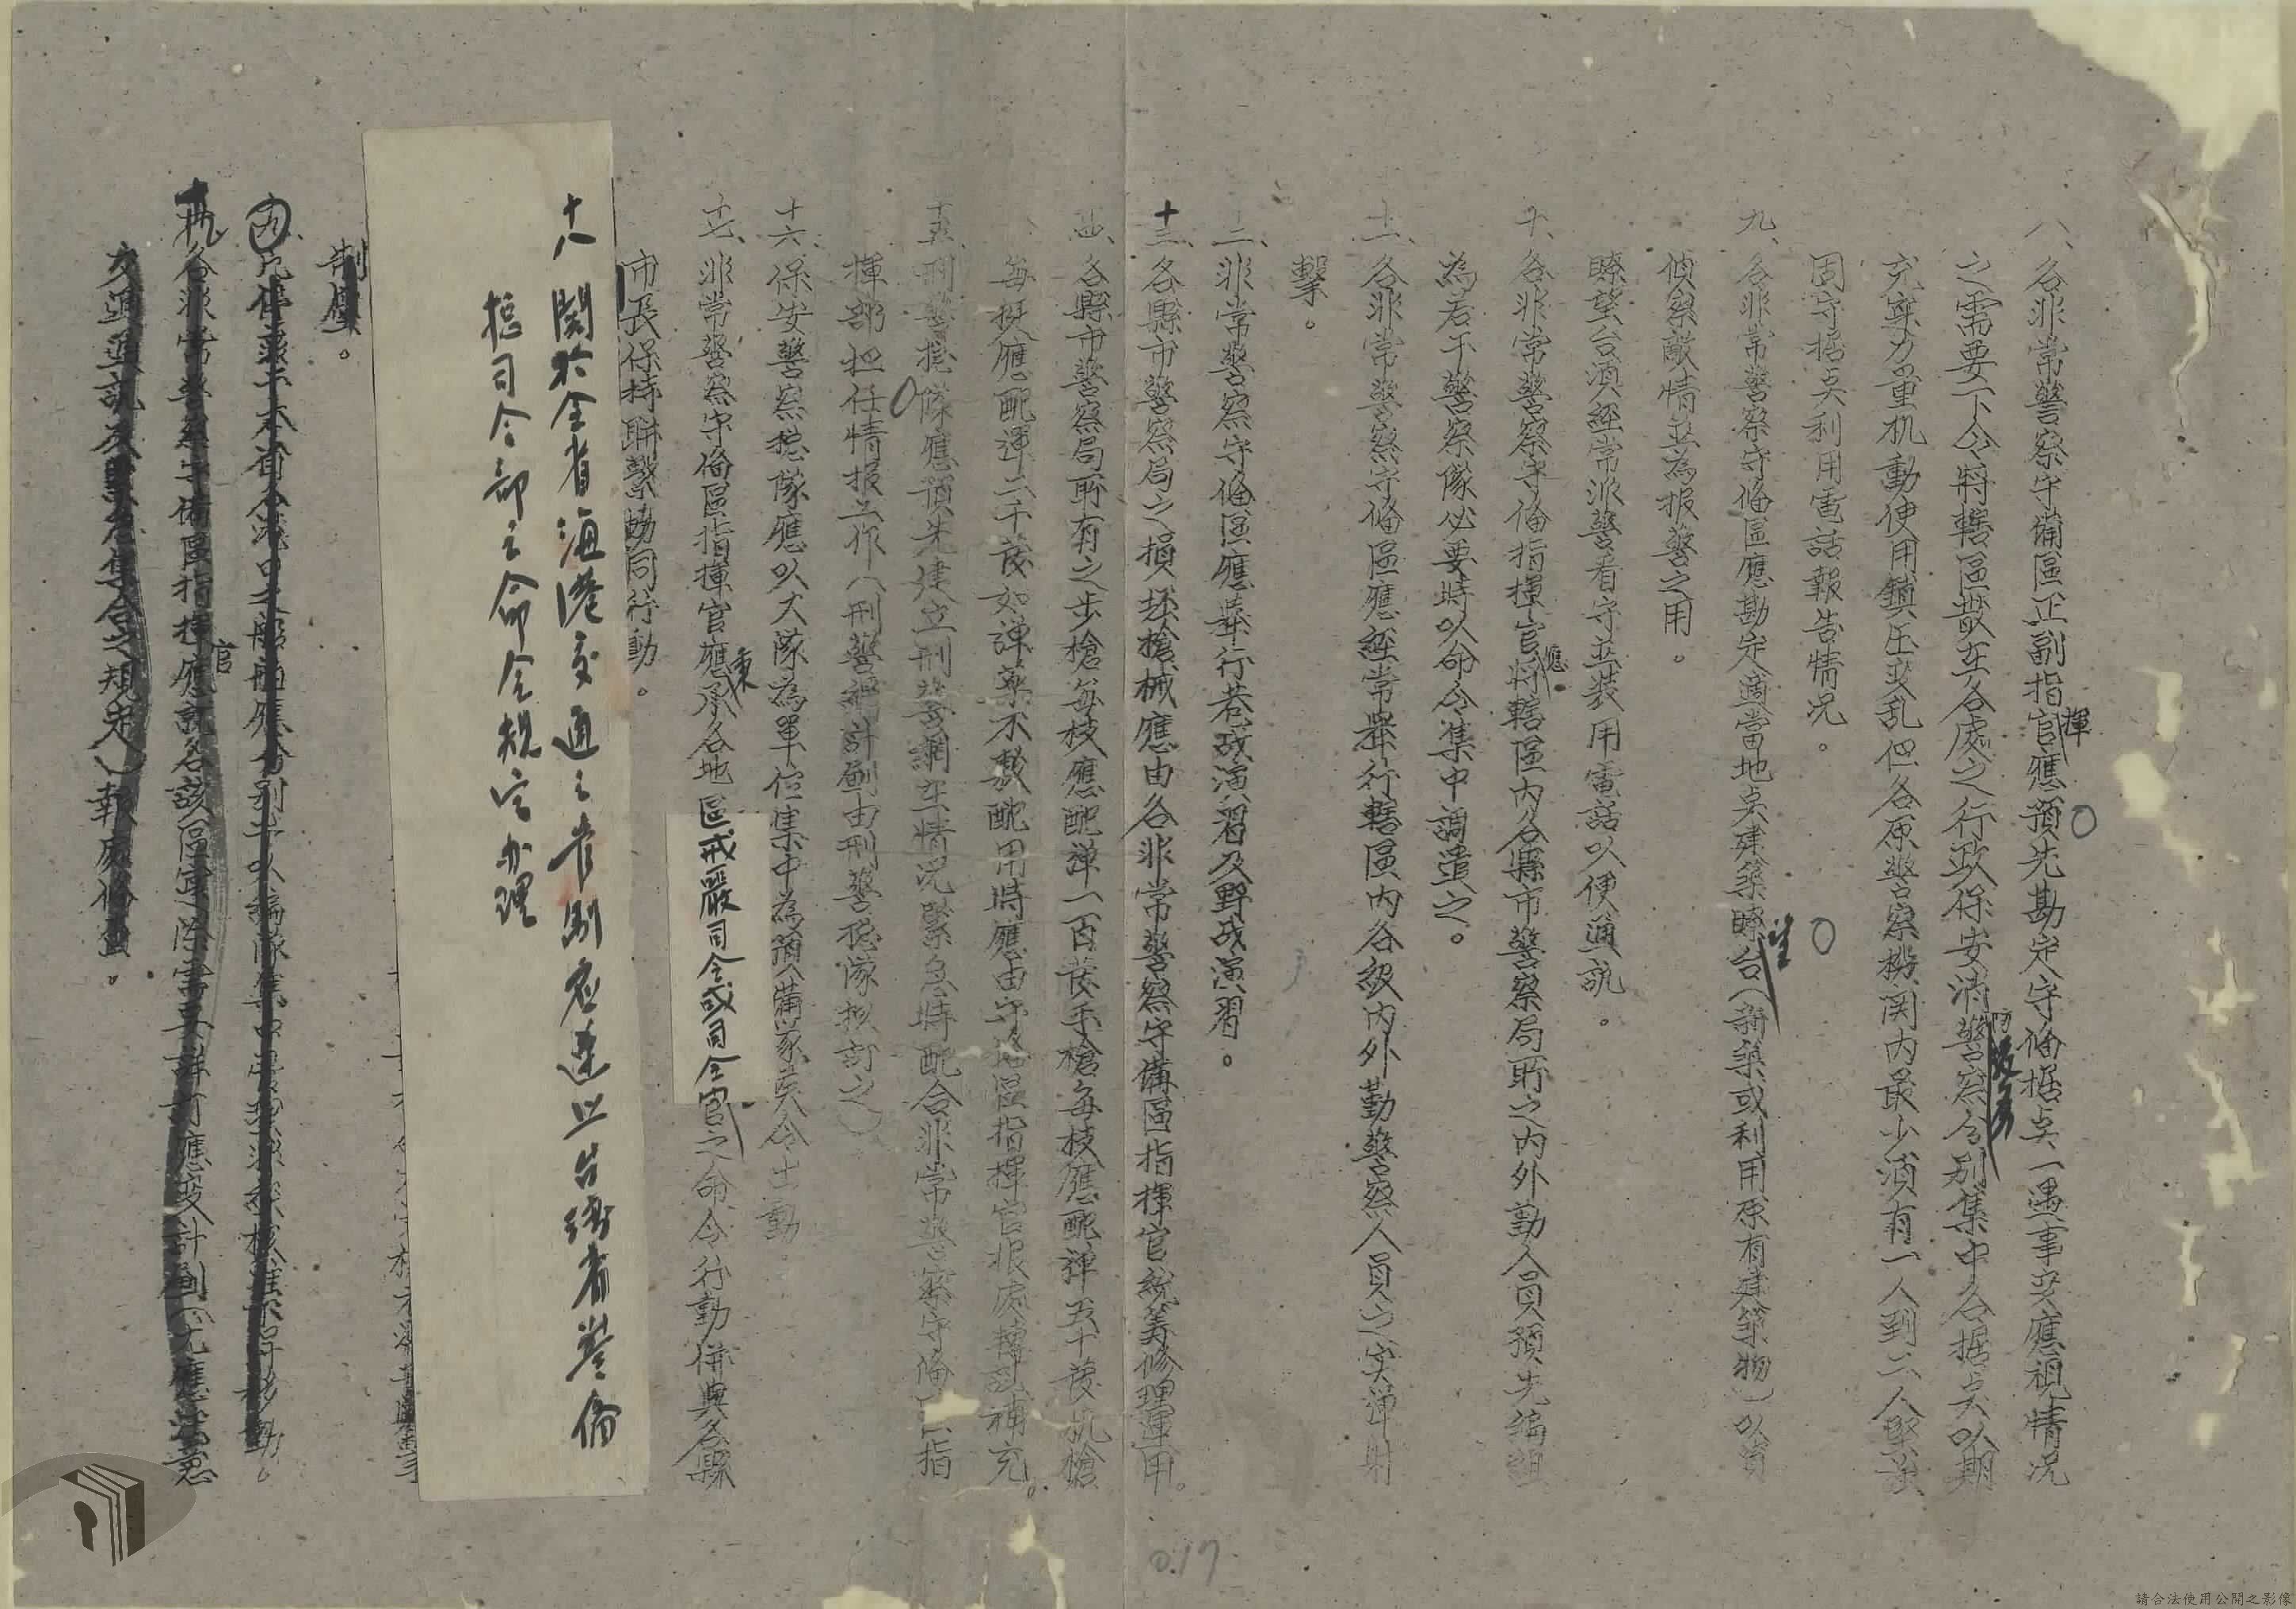 八、各非常警察守備區正副指揮官應預先勘定守備据点一遇事变應視情況
之需要下令將轄區散在各處之行政保安消防警察分別集中各据点以期
充实力量机動使用鎮压变乱但各原警察機関内最少須有一人到二人堅強
固守据点利用電話報告情況。
九、各非常警察守備區應勘定適當地点建築瞭望台（新築或利用原有建築物）以資
偵察敵情並為报警之用。
瞭望台須經常派警看守並裝用電話以便通訊。
十、各非常警察守備指揮官應將轄區内各縣市警察局所之内外勤人員預先編組
為若干警察隊必要時以命令集中調遣之。
十一、各非常警察守備區應經常舉行轄區内各級内外勤警察人員之实弹射
擊。
十二、非常警察守備區應舉行巷战演習及野战演習。
十三、各縣市警察局之損坏槍械應由各非常警察守備區指揮官統筹修理運用。
十四、各縣市警察局所有之步槍每枝應配弹一百發手槍每枝應配弹五十發机槍
每挺應配弹二千發如弹藥不敷配用時應由守備區指揮官报處轉請補充。
十五、刑警總隊應預先建立刑警網在情況緊急時配合非常警察守備區指
揮部担任情报工作（刑警網計劃由刑警總隊拟訂之）
十六、保安警察總隊應以大隊為單位集中為預備隊 令出動。
十七、非常警察守備區指揮官應秉承各地區戒嚴司令或司令官之命令行動併與各縣
市長保持聯繫協同行動。
十八 関於全省海港交通之管制应遵以台湾省警備
總司令部之命令規定办理
制壓。
凡停泊于本省各港口之船舶應分别予以編隊集中
十九各非常警察守備區指揮官應就各該區實際需要詳訂應变計劃（尤應注意
交通通訊及緊急集合之規定）報處備查。
017
請合法使用公開之影像